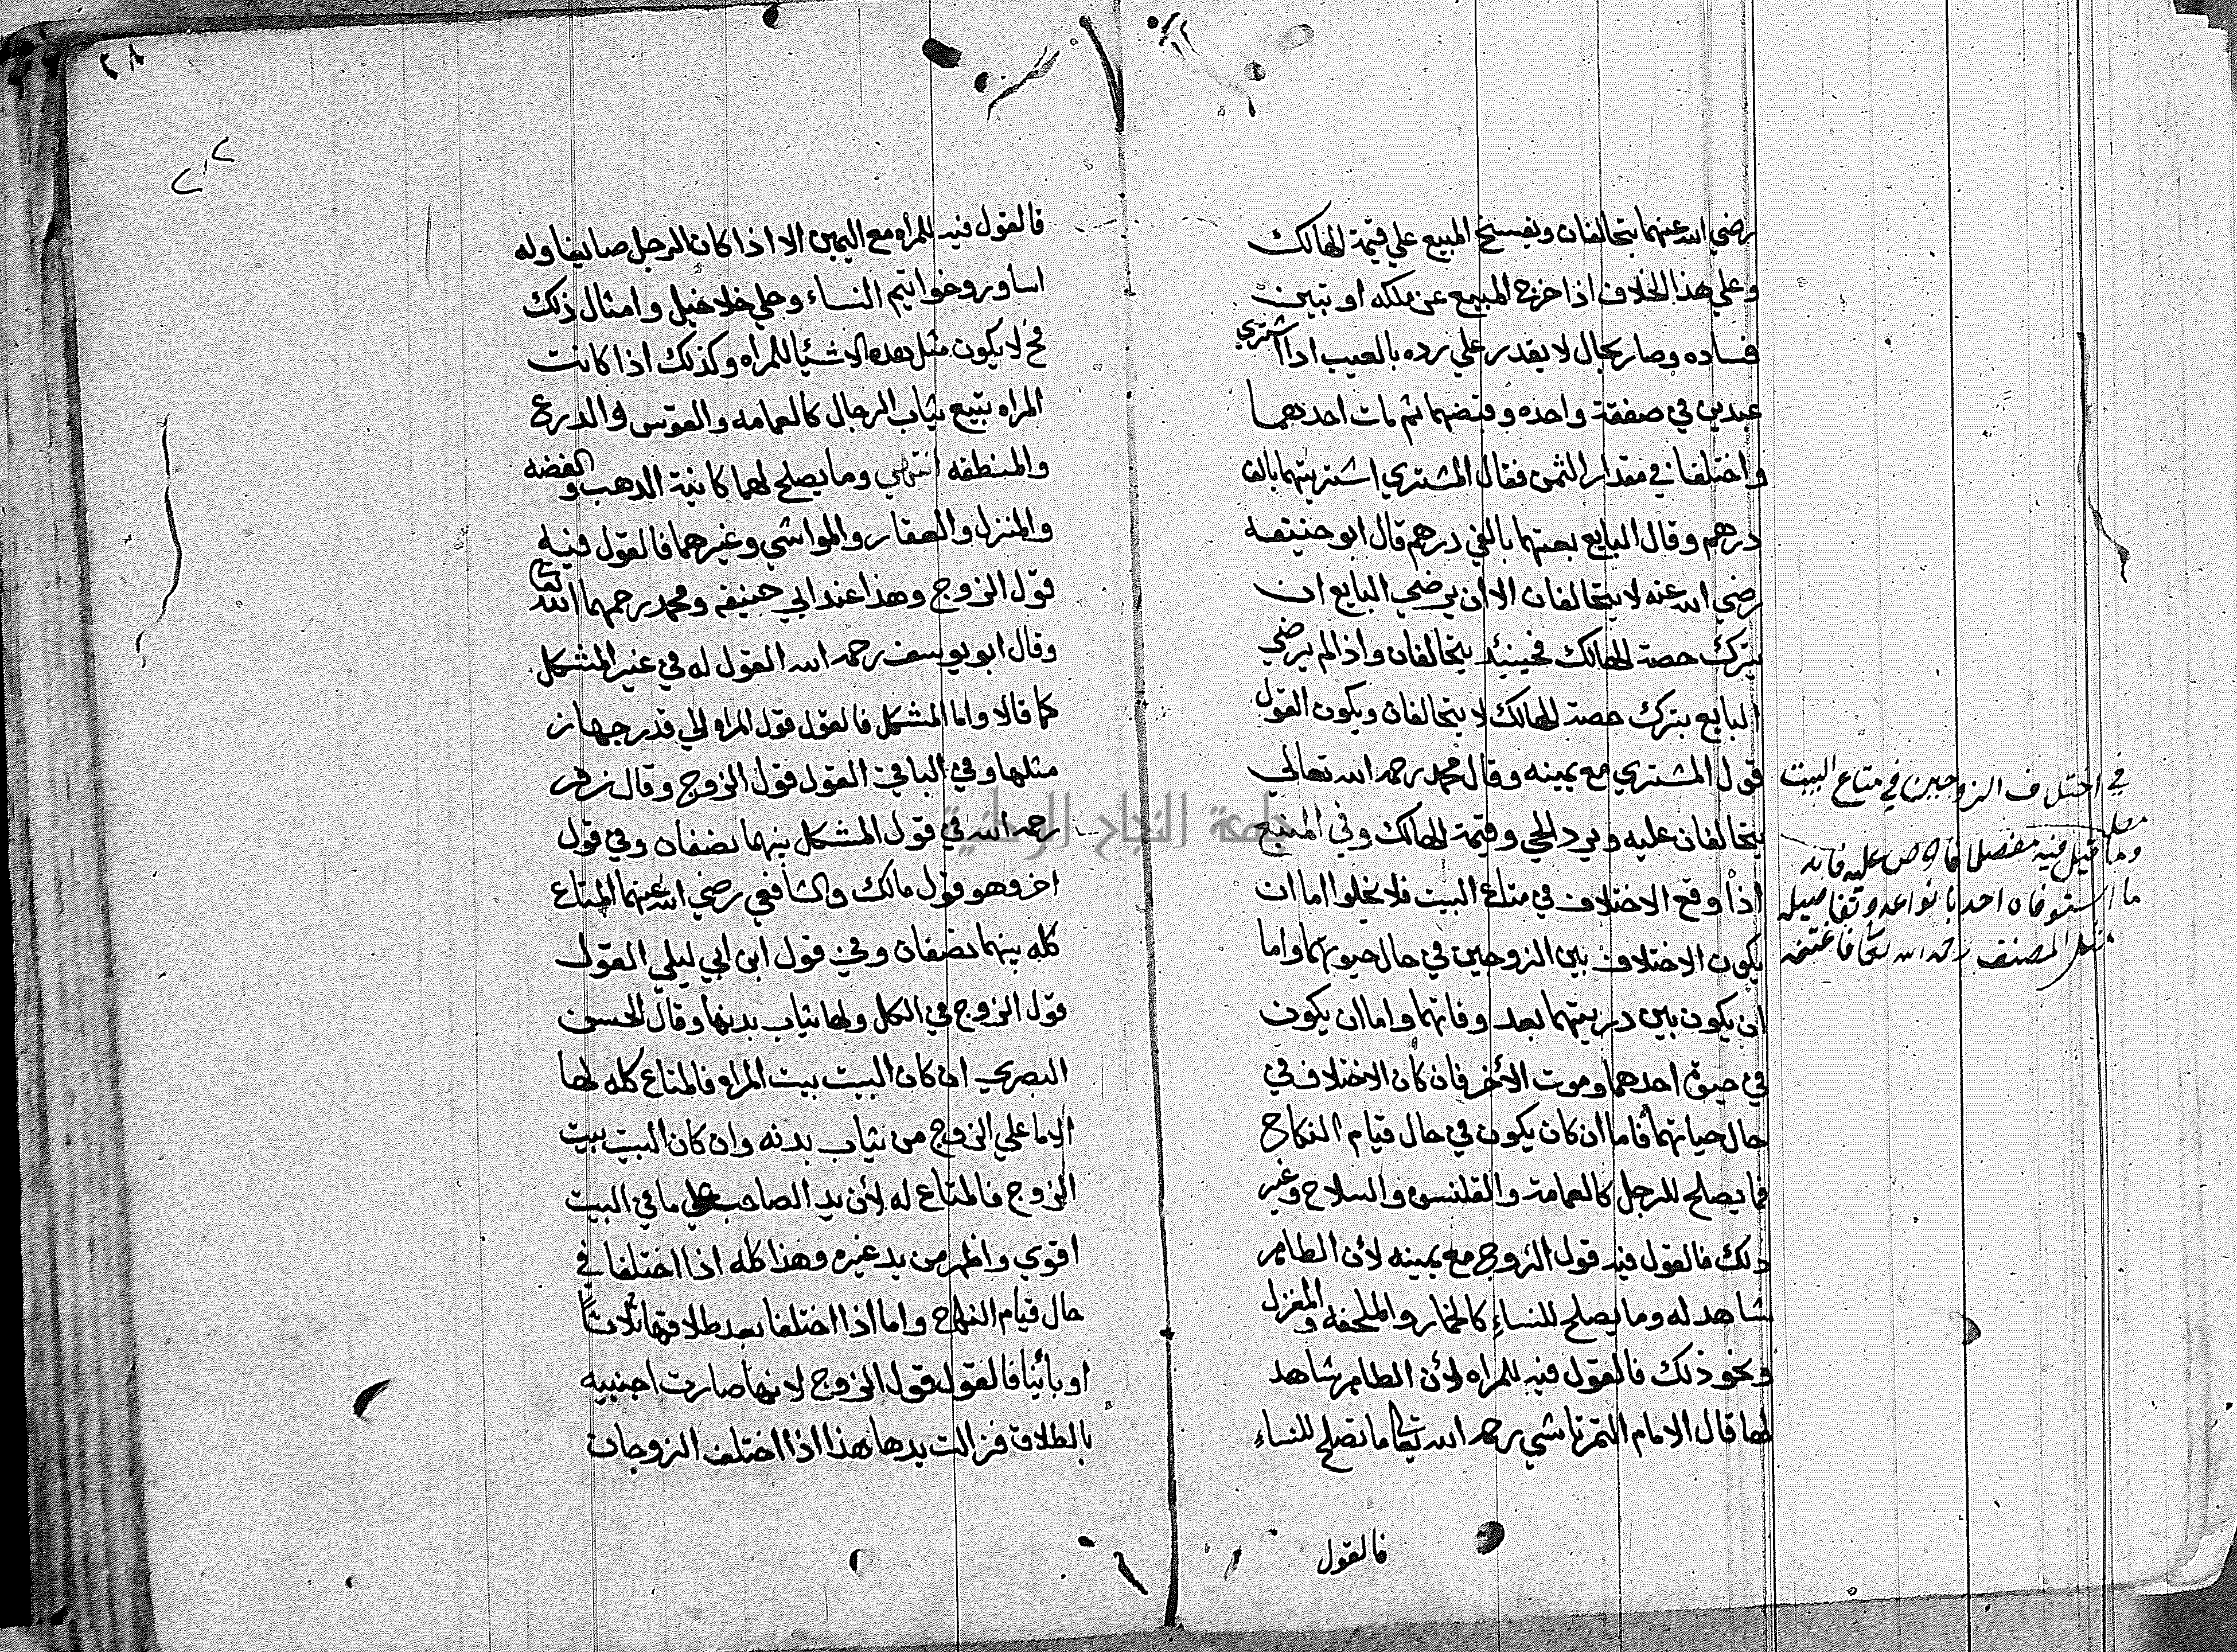 رضي الله عنهما يتحالفان ويفسخ المبيع علي قيمة الهالك
وعلي هذا الخلاف اذا خرج المبيع عن ملكه او تبين
فساده وصار بحال لا يقدر علي رده بالعيب اذا اشتري
عبدين في صفقة واحده وقبضهما ثم مات احدهما
واختلفا في مقدار الثمن فقال المشتري اشتريتهما بالف
درهم وقال البايع بعتهما بالفي درهم قال ابو حنيفه
رضي الله عنه لا يتحالفان الا ان يرضي البايع ان
يترك حصة الهالك فحينئد يتحالفان واذا لم يرضي
البايع بترك حصة الهالك لا يتحالفان ويكون القول
قول المشتري مع يمينه وقال محمد رحمه الله تعالي
يتحالفان عليه ويرد الحي وقيمة الهالك وفي المبيع
اذا وقع الاختلاف في متاع البيت فلا يخلوا اما ان
يكون الاختلاف بين الزوجين في حال حيوتهما واما
ان يكون بين دريتهما بعد وفاتهما واما ان يكون
في حيوة احدهما وموت الأخر فان كان الاختلاف في
حال حياتهما فاما ان كان يكون في حال قيام النكاح
فما يصلح للرجل كالعمامة والقلنس والسلاح وغير
ذلك فالقول فيه قول الزوج مع يمينه لأن الظاهر
شاهد له وما يصلح للنساء كالخمار والملحفه والمغزل
ونحو ذلك فالقول فيه للمراه لأن الظاهر شاهد
لها قال الامام التمرتاشي رحمه الله تعالى ما تصلح للنساء
فالقول
في اختلاف الزوجين في متاع البيت
وما قيل فيه مفصلا عليه فانه
ما استوفاه احد بانواعه وتفاصيله
مثل المصنف رحمه الله تعالى فاغتنمه
٢٨
فالقول فيه للمرأه مع اليمين الا اذا كان الرجل صايغا وله
اساور وخواتيم النساء وحلي خلاخيل وامثال ذلك
فح لا يكون مثل هده الاشيا للمراه وكذلك اذا كانت
المراه تبيع ثياب الرجال كالعمامه والقوس والدرع
والمنطقه انتهي وما يصلح لهما كانية الدهب والفضه
والمنزل والعقار والمواشي وغيرهما فالقول فيه
قول الزوج وهذا عند ابي حنيفه ومحمد رحمهما الله تعالى
وقال ابو يوسف رحمه الله القول له في غير المشكل
كما قالا واما المشكل فالقول قول المراه الي قدر جهاز
مثلها وفي الباقي القول قول الزوج وقال زفر
رحمه الله في قول المشكل بينهما نصفان وفي قول
اخر وهو قول مالك والشافعي رضي الله عنهما المتاع
كله بينهما نصفان وفي قول ابن ابي ليلي القول
قول الزوج في الكل ولها ثياب بدنها وقال الحسن
البصري ان كان البيت بيت المراه فالمتاع كله لها
الا ما علي الزوج من ثياب بدنه وان كان البيت بيت
الزوج فالمتاع له لأن يد الصاحب علي ما في البيت
اقوي واظهر من يد غيره وهذا كله اذا اختلفا في
حال قيام النكاح واما اذا اختلفا بعد طلاقها ثلاثا
او بائنا فالقول قول الزوج لانها صارت اجنبيه
بالطلاق فزالت يدها هذا اذا اختلف الزوجان
جامعة النجاح الوطنية